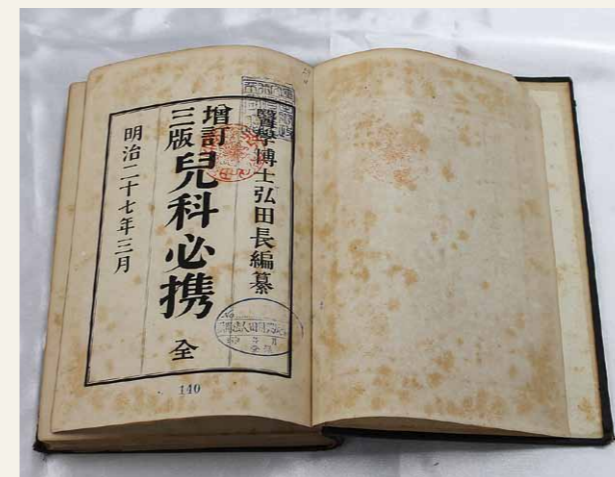 醫學博士弘田長編纂
增訂
三版
兒科必携 全
明治二十七年三月
140